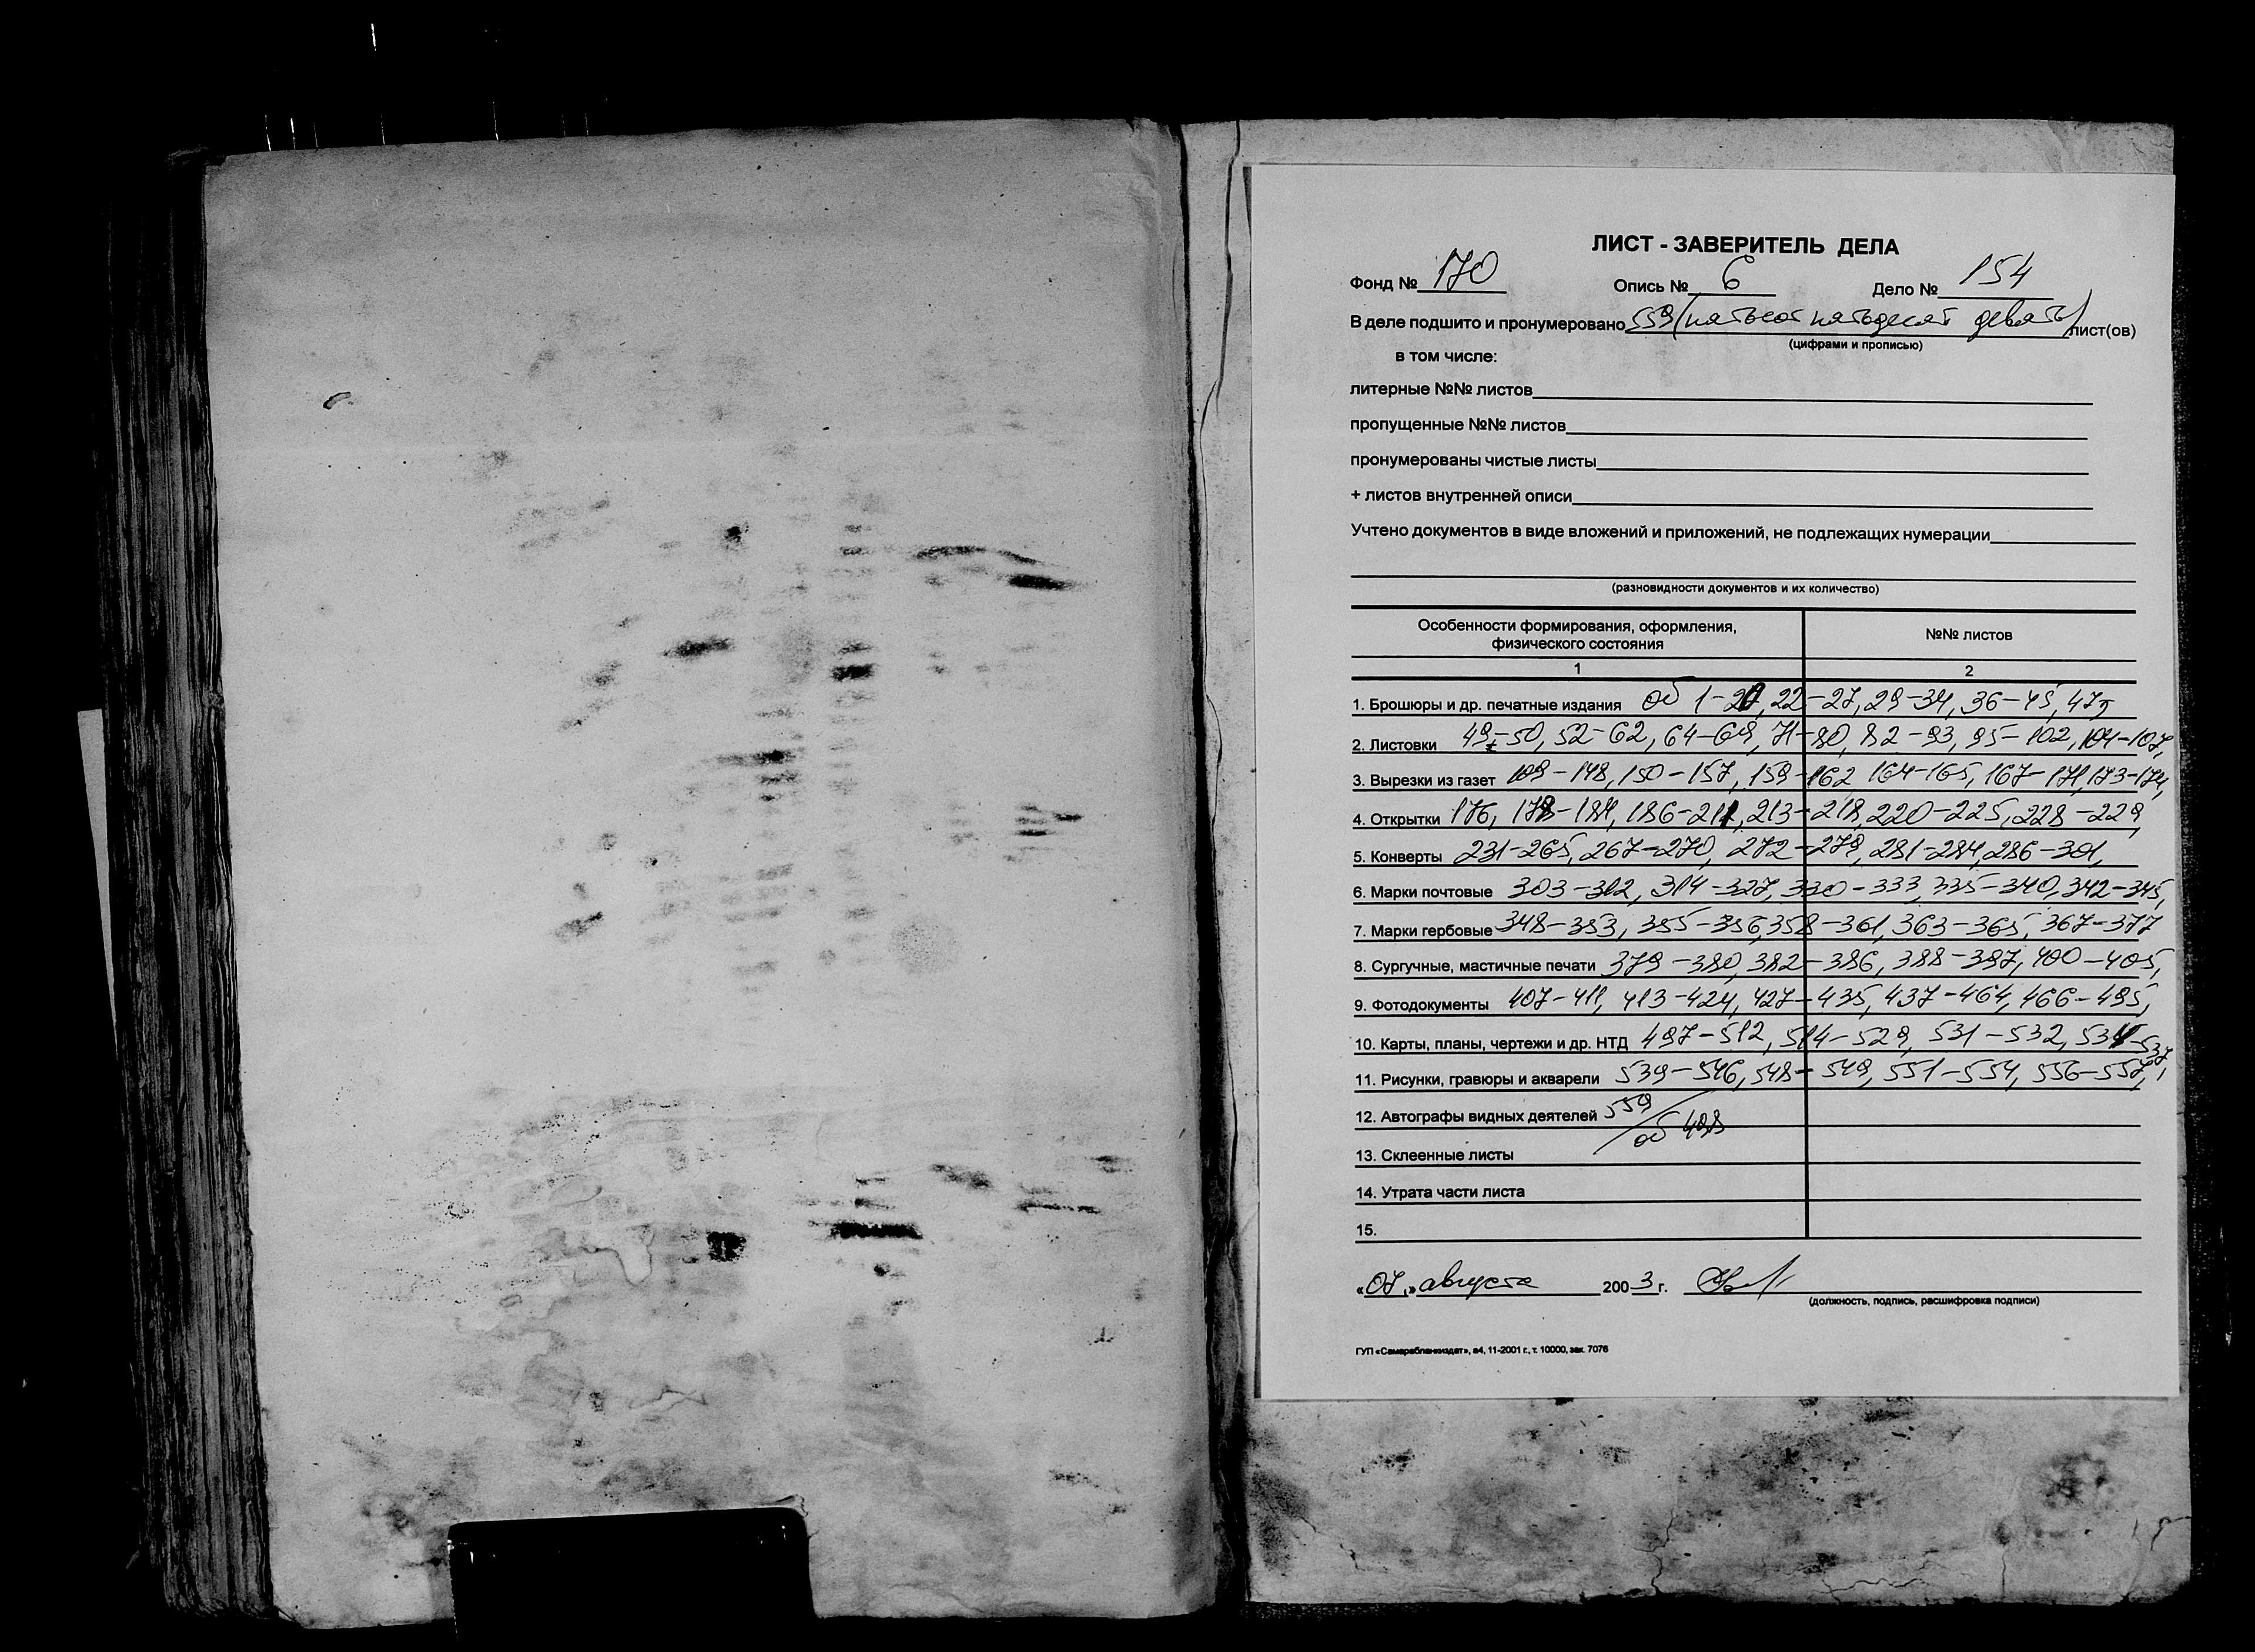 ЛИСТ - ЗАВЕРИТЕЛЬ ДЕЛА
Фонд № 170 Опись № 6 Дело № 154
В деле подшито и пронумеровано 559 (пятьсот пятьдесят девять) лист(ов)
(цифрами и прописью)
в том числе:
литерные №№ листов
пропущенные №№ листов
пронумерованы чистые листы
+ листов внутренней описи
Учтено документов в виде вложений и приложений, не подлежащих нумерации
(разновидности документов и их количество)
Особенности формирования, оформления, физического состояния №№ листов
1 2
1. Брошюры и др. печатные издания об 1-20, 22-27, 29-34, 36-45, 47,
2. Листовки 49-50, 52-62, 64-69, 71-80, 82-93, 95-102, 104-107,
3. Вырезки из газет 109-148, 150-157, 159-162, 164-165, 167-171, 173-174,
4. Открытки 176, 178-184, 186-211, 213-218, 220-225, 228-229,
5. Конверты 231-265, 267-270, 272-279, 281-284, 286-301,
6. Марки почтовые 303-312, 314-327, 330-333, 335-340, 342-345,
7. Марки гербовые 348-353, 355-356, 358-361, 363-365, 367-377
8. Сургучные, мастичные печати 379-380, 382-386, 388-397, 400-405,
9. Фотодокументы 407-411, 413-424, 427-435, 437-464, 466-495,
10. Карты, планы, чертежи и др. НТД 497-512, 514-529, 531-532, 534-537,
11. Рисунки, гравюры и акварели 539-546, 548-549, 551-554, 556-557,
12. Автографы видных деятелей 559 / об 498
13. Склеенные листы
14. Утрата части листа
15.
«07.» августа 2003 г.
(должность, подпись, расшифровка подписи)
ГУП «Самарабланкиздат», а4, 11-2001 г., т. 10000, зак. 7076